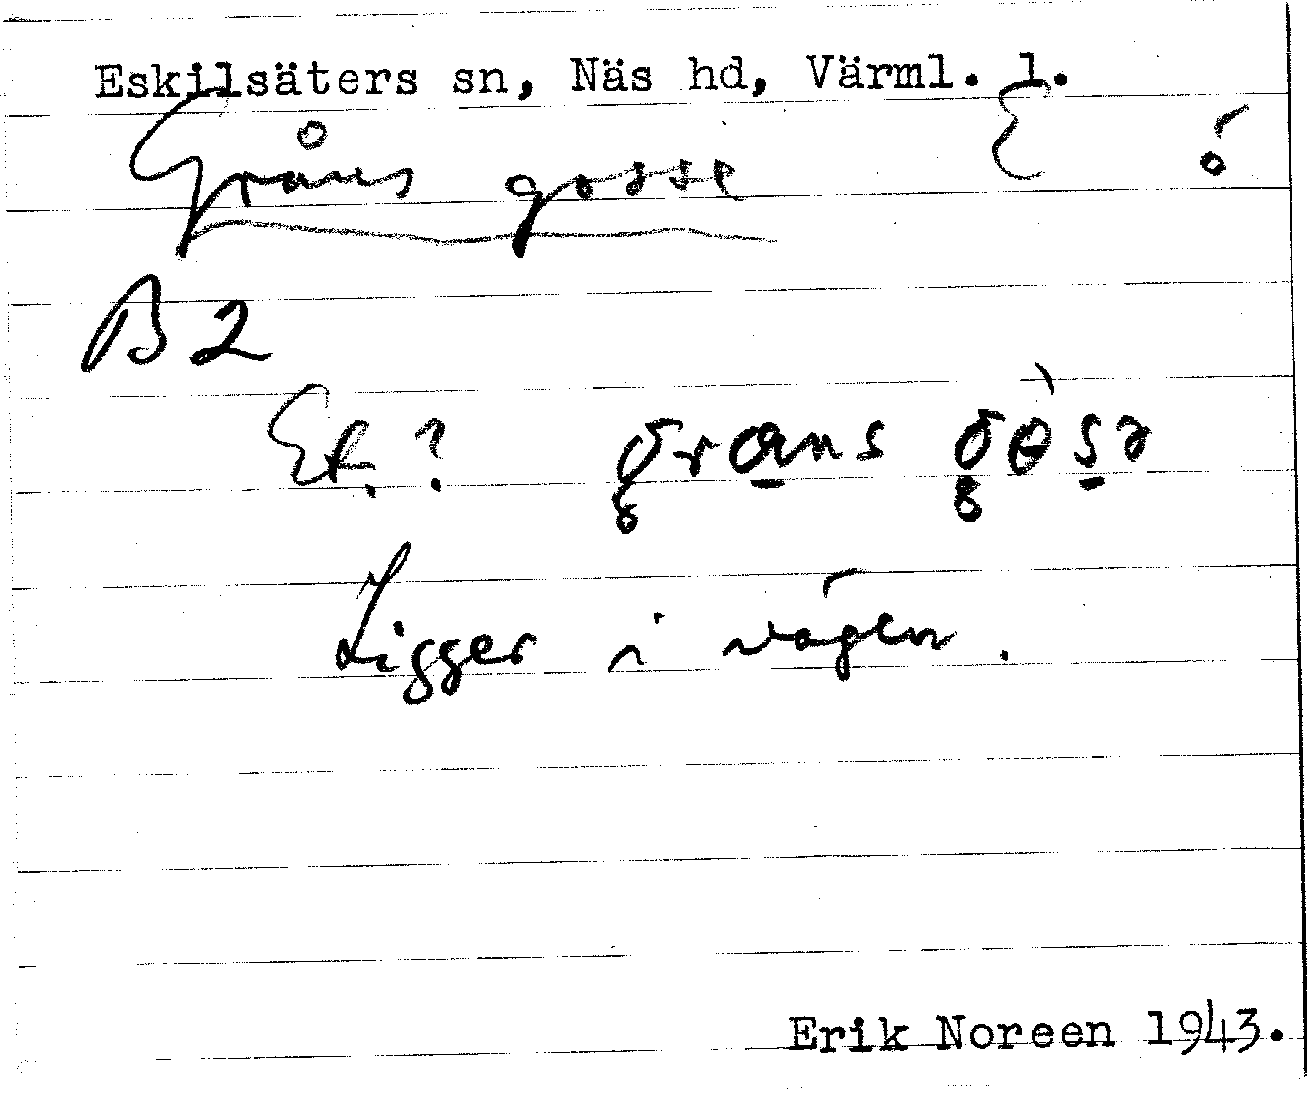 Eskilsäters sn, Näs hd, Värml. l.
Gråns gosse
B 2
Et.?
Ligger i vägen.
Erik Noreen 1943.